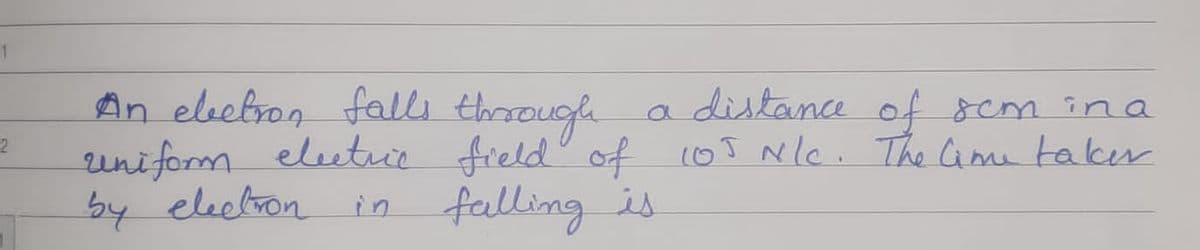 1
An electron falls through a distance of 8cm in a
2
uniform electric field of 105 N/c. The time taken
by electron in falling is